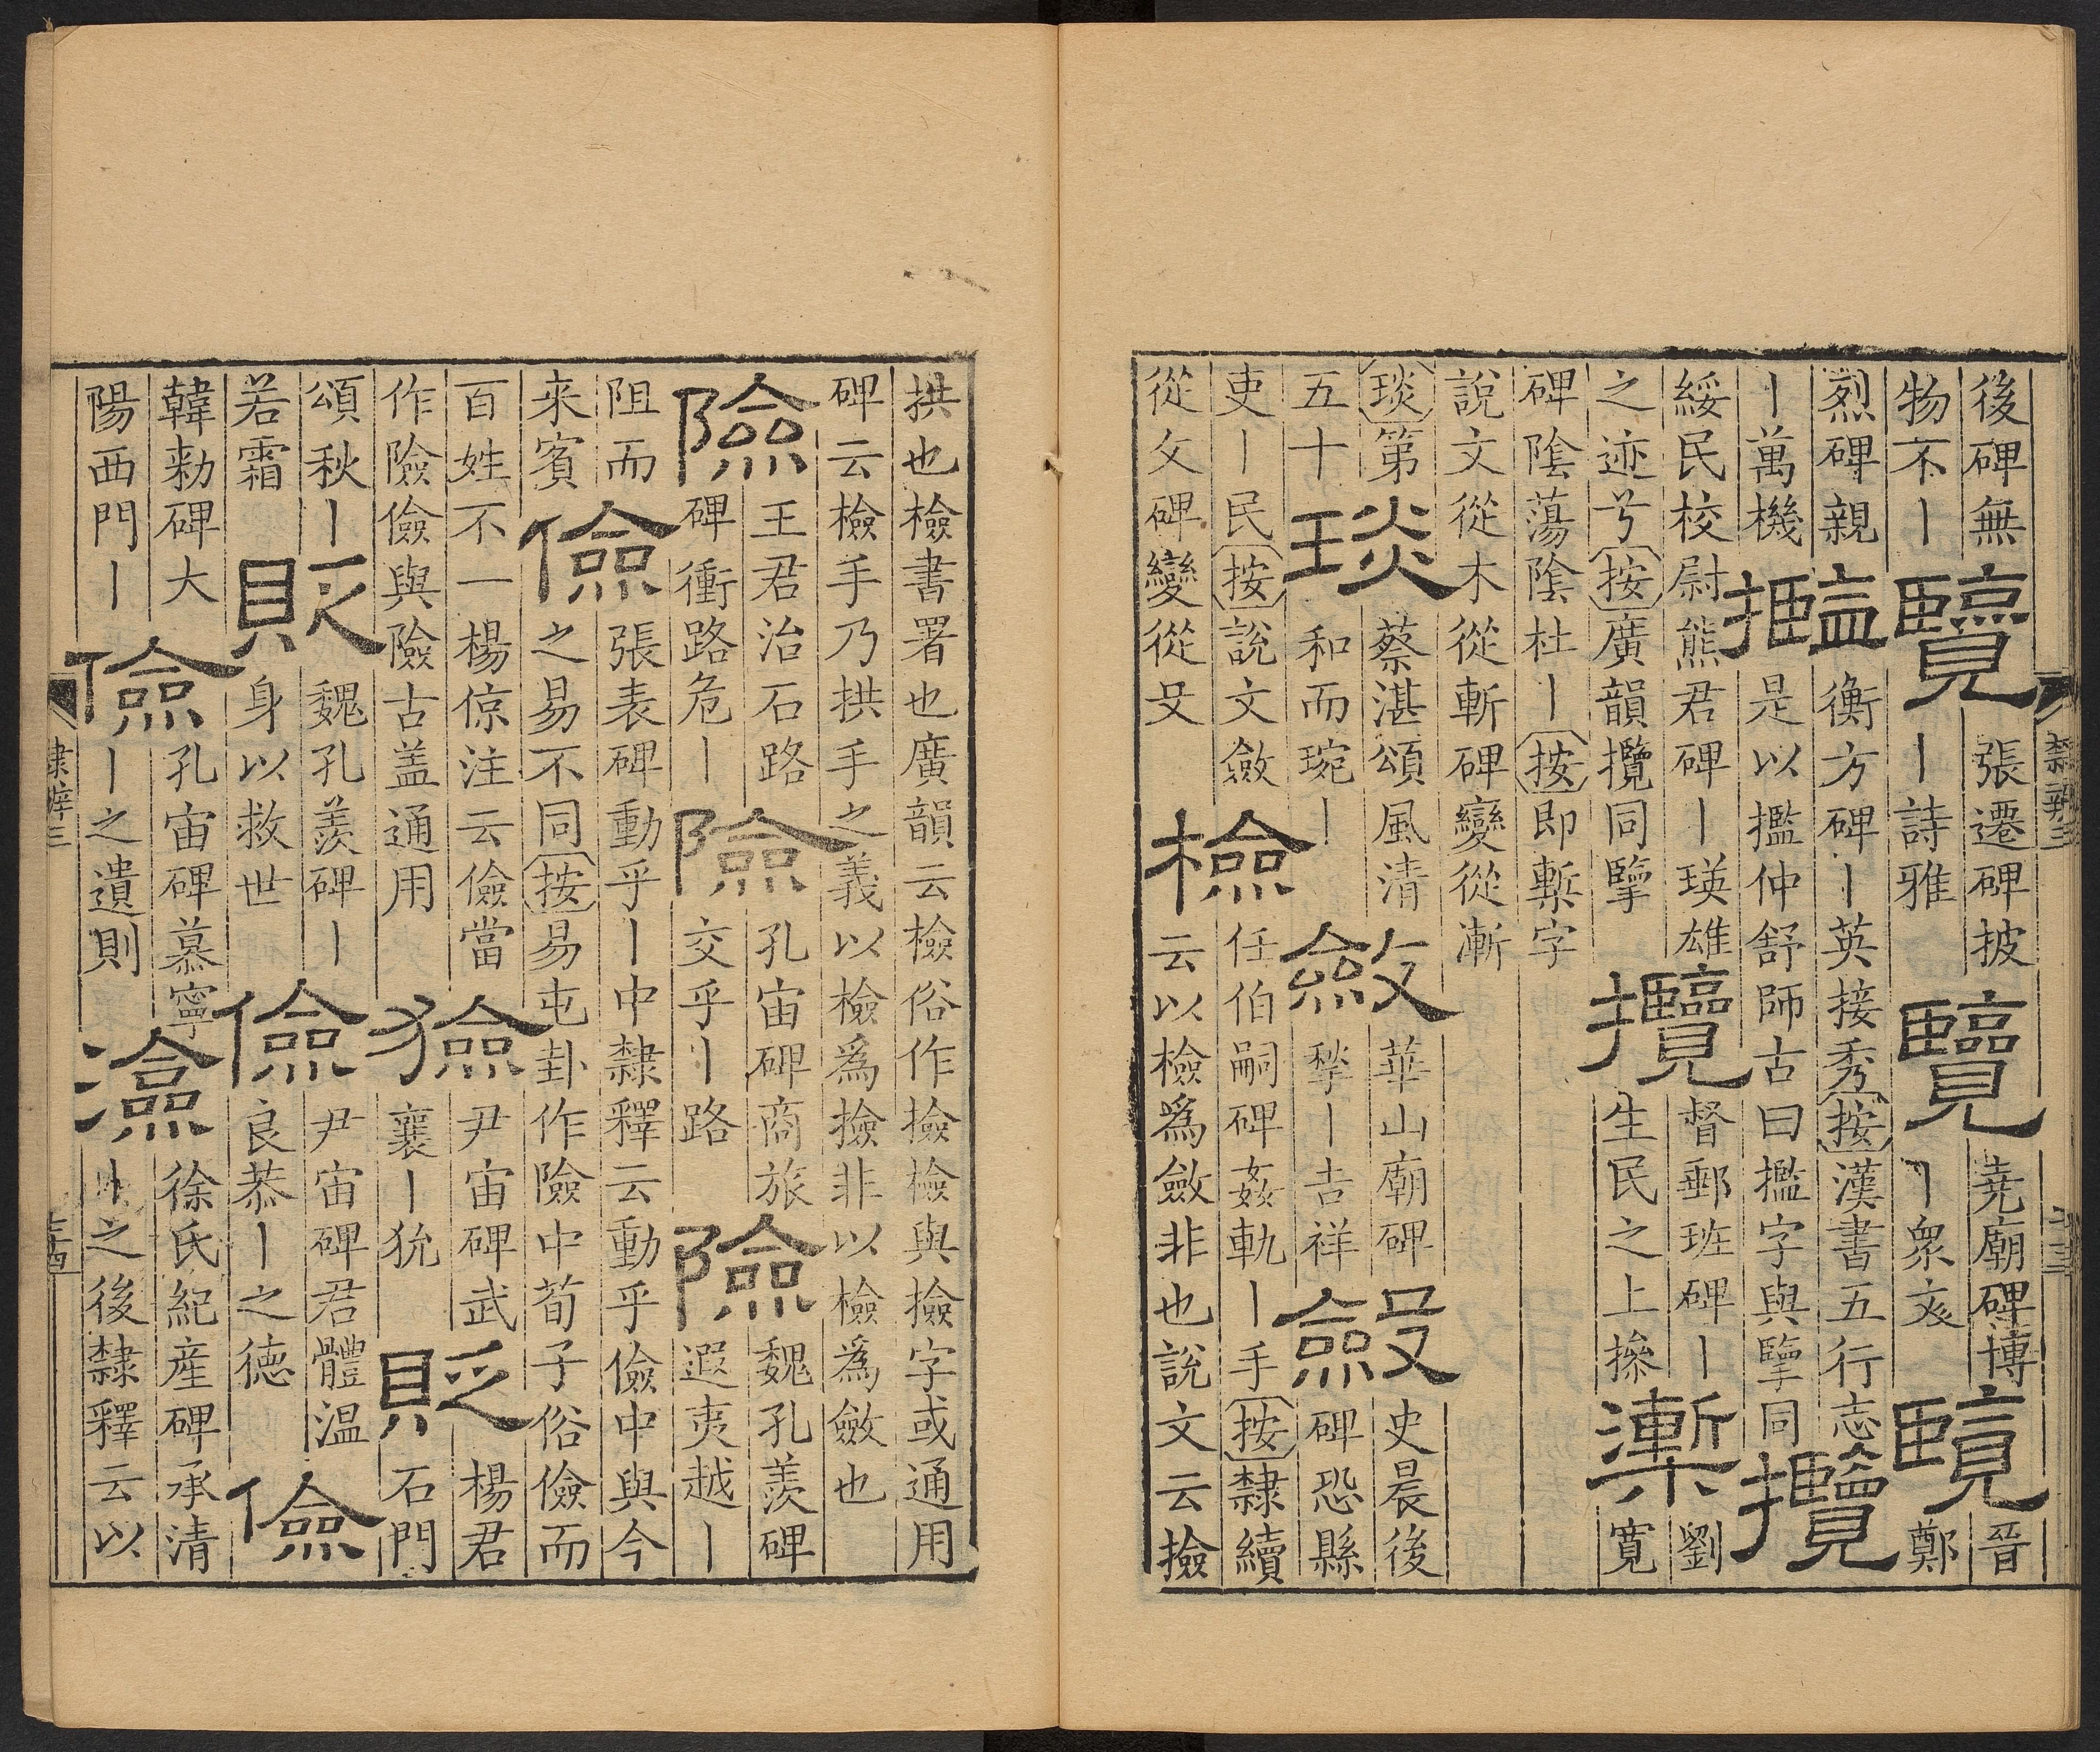 後碑無
物不丨
覽
張遷碑披
丨詩雅
覽
堯廟碑博
丨衆文
覽
晉
鄭
烈碑親
丨萬機
㩜
衡方碑丨英接秀按漢書五行志
是以㩜仲舒師古曰㩜字與擥同
攬
綏民校尉熊君碑丨瑛雄
之迹兮按廣韻攬同擥
攬
督郵班碑丨
生民之上摻
漸
劉
寬
碑陰蕩陰杜丨按即槧字
說文從木從斬碑變從漸
琰第
五十
琰
蔡湛頌風清
和而琬丨
斂
華山廟碑
揫丨吉祥
斂
史晨後
碑恐縣
吏丨民按說文斂
從攵碑變從殳
檢
任伯嗣碑姦軌丨手按隸續
云以檢爲斂非也說文云撿
隸辨三
拱也檢書署也廣韻云檢俗作撿檢與撿字或通用
碑云檢手乃拱手之義以檢爲撿非以檢爲斂也
險
王君治石路
碑衝路危丨
險
孔宙碑商旅
交乎丨路
險
魏孔羨碑
遐夷越丨
阻而
来賓
儉
張表碑動乎丨中隸釋云動乎儉中與今
之易不同按易屯卦作險中荀子俗儉而
百姓不一楊倞注云儉當
作險儉與險古盖通用
獫
尹宙碑武
襄丨狁
貶
楊君
石門
頌秋丨
若霜
貶
魏孔羨碑丨
身以救世
儉
尹宙碑君體温
良恭丨之德
儉
韓勑碑大
陽西門丨
儉
孔宙碑慕寧
丨之遺則
澰
徐氏紀産碑承清
丨之後隸釋云以
隸辨三